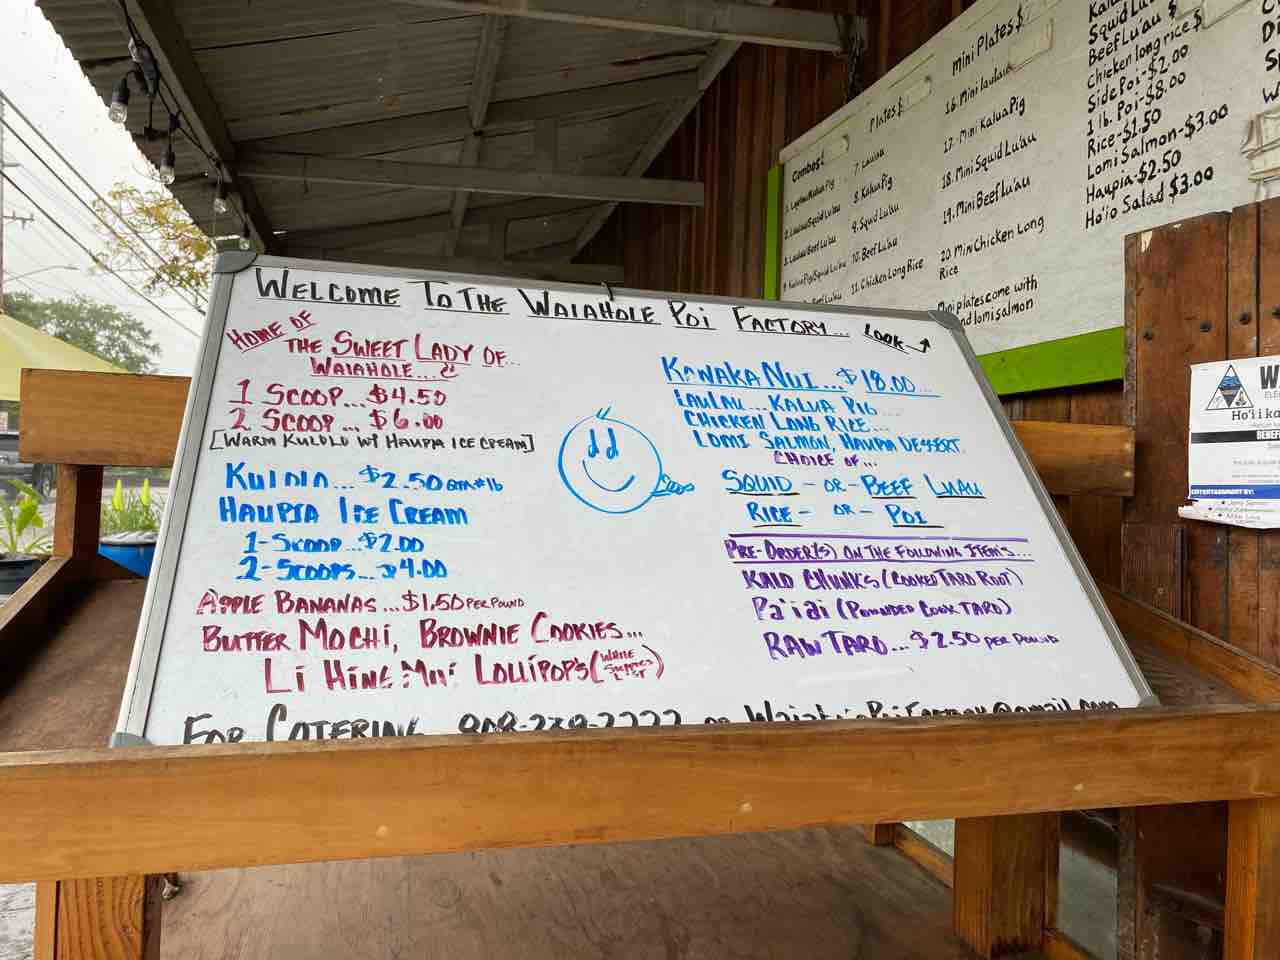 WELCOME TO THE WAIAHOLE POI FACTORY...
LOOK
HOME OF
THE SWEET LADY OF...
WAIAHOLE...
1 SCOOP...$4.50
2 SCOOP... $6.00
[WARM KULOLO W/ HAUPIA ICE CREAM]
$2.50
HAUPIA ICE CREAM
1-SCOOP...$2.00
2-SCOOPS...$4.00
APPLE BANANAS...$1.50 PER POUND
BUTTER MOCHI, BROWNIE COOKIES...
LI HING MUI LOLLIPOP'S (WHILE SUPPLIES LAST)
KANAKA NUI...$18.00...
LAULAU...KALUA PIG...
CHICKEN LONG RICE...
LOMI SALMON, HAUPIA DESSERT.
CHOICE OF...
SQUID - OR - BEEF LUAU
RICE - OR - POI
PRE-ORDER(S) ON THE FOLLOWING ITEM'S...
KALO CHUNKS (COOKED TARO ROOT)
PA'I'AI (POUNDED COOK TARO)
RAW TARO...$2.50 PER POUND
FOR CATERING
Combos $
1. Laulau/Kalua Pig
2. Laulau/Squid Lu'au
3. Laulau/Beef Lu'au
4. Kalua Pig/Squid Lu'au
Plates $
7. Laulau
8. Kalua Pig
9. Squid Lu'au
10. Beef Lu'au
11. Chicken Long Rice
Mini Plates $
16. Mini laulau
17. Mini Kalua Pig
18. Mini Squid Lu'au
19. Mini Beef Lu'au
20. Mini Chicken Long
Rice
Mini plates come with
and lomi salmon
Squid Lu'au
Beef Lu'au $
Chicken long rice $
Side Poi-$2.00
1 lb. Poi-$8.00
Rice-$1.50
Lomi Salmon-$3.00
Haupia-$2.50
Ho'io Salad $3.00
Ho'i i ka
ENTERTAINMENT BY: